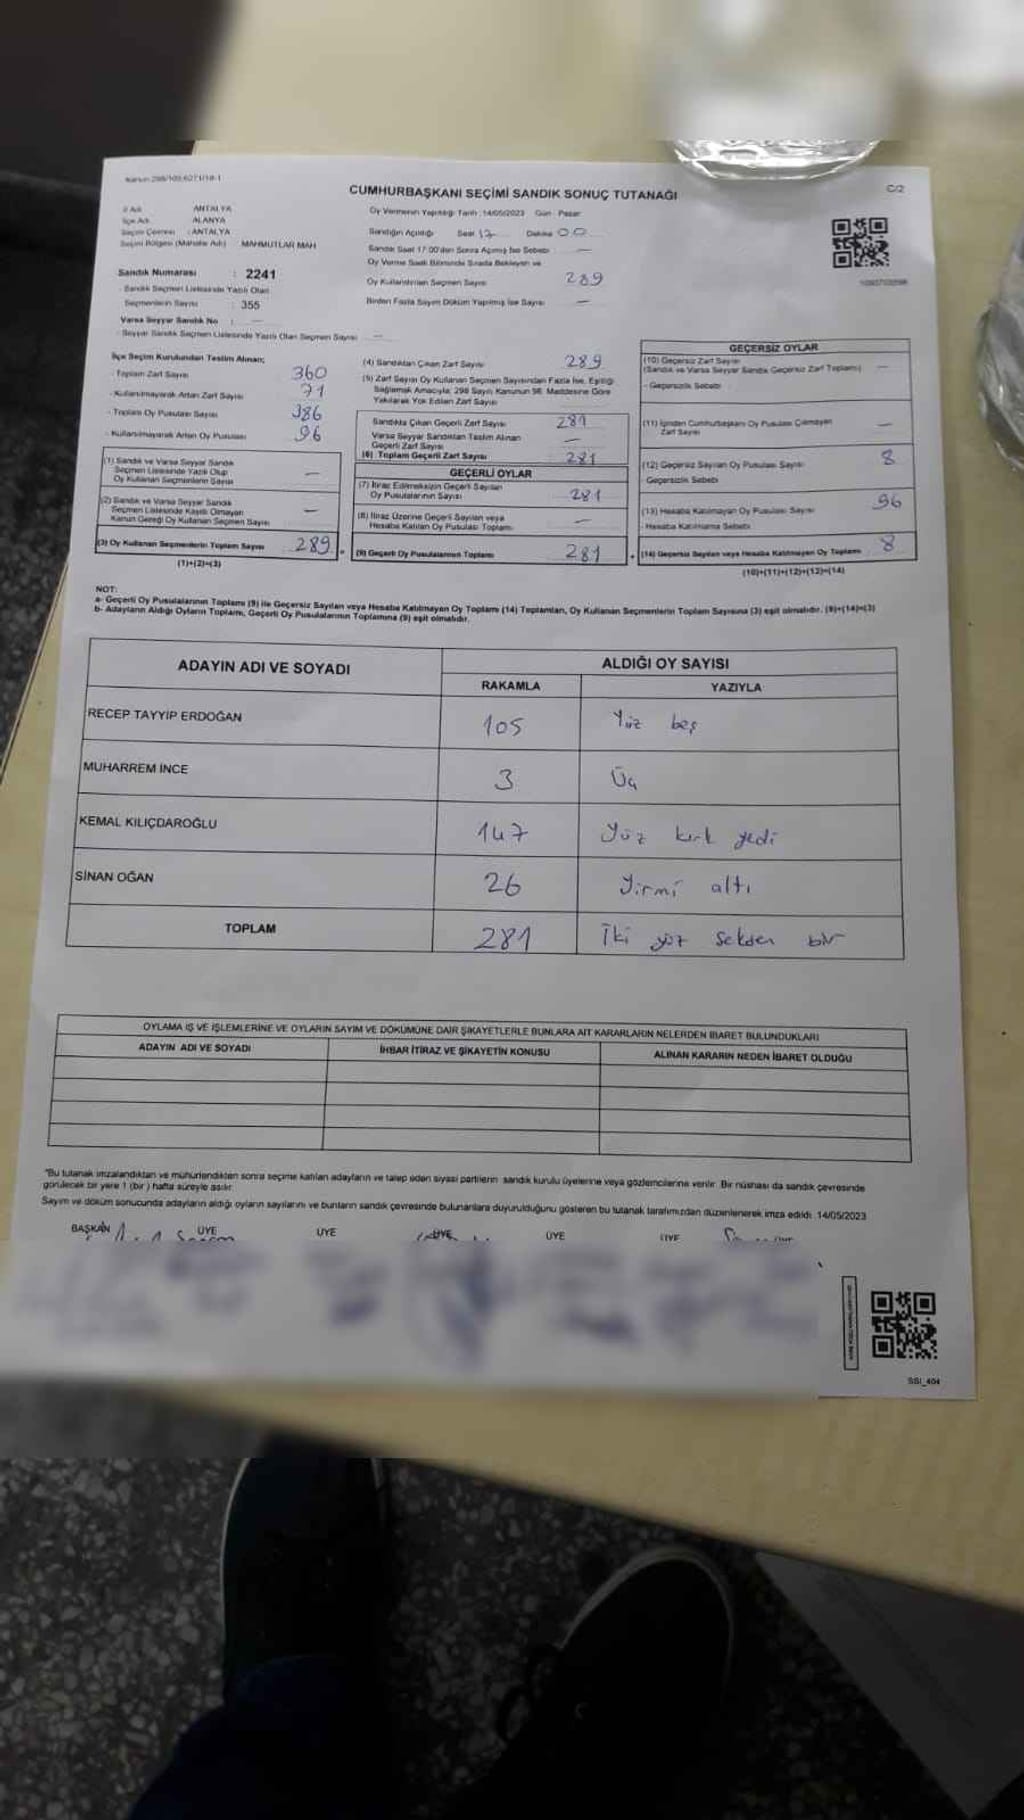 Kanun 298/105,6271/18-1
CUMHURBAŞKANI SEÇİMİ SANDIK SONUÇ TUTANAĞI
C/2
İl Adı : ANTALYA
İlçe Adı : ALANYA
Seçim Çevresi : ANTALYA
Seçim Bölgesi (Mahalle Adı) MAHMUTLAR MAH
Sandık Numarası : 2241
- Sandık Seçmen Listesinde Yazılı Olan
Seçmenlerin Sayısı : 355
Varsa Seyyar Sandık No : —
- Seyyar Sandık Seçmen Listesinde Yazılı Olan Seçmen Sayısı —
Oy Vermenin Yapıldığı Tarih :14/05/2023 Gün : Pazar
Sandığın Açıldığı Saat 17 Dakika 00
Sandık Saat 17:00'den Sonra Açılmış İse Sebebi —
Oy Verme Saati Bitiminde Sırada Bekleyen ve
Oy Kullandırılan Seçmen Sayısı 289
Birden Fazla Sayım Döküm Yapılmış İse Sayısı —
İlçe Seçim Kurulundan Teslim Alınan;
- Toplam Zarf Sayısı 360
- Kullanılmayarak Artan Zarf Sayısı 71
- Toplam Oy Pusulası Sayısı 386
- Kullanılmayarak Artan Oy Pusulası 96
(1) Sandık ve Varsa Seyyar Sandık
Seçmen Listesinde Yazılı Olup
Oy Kullanan Seçmenlerin Sayısı —
(2) Sandık ve Varsa Seyyar Sandık
Seçmen Listesinde Kayıtlı Olmayan
Kanun Gereği Oy Kullanan Seçmen Sayısı —
(3) Oy Kullanan Seçmenlerin Toplam Sayısı 289
(1)+(2)=(3)
(4) Sandıktan Çıkan Zarf Sayısı 289
(5) Zarf Sayısı Oy Kullanan Seçmen Sayısından Fazla İse, Eşitliği
Sağlamak Amacıyla; 298 Sayılı Kanunun 98. Maddesine Göre
Yakılarak Yok Edilen Zarf Sayısı
Sandıkta Çıkan Geçerli Zarf Sayısı 281
Varsa Seyyar Sandıktan Teslim Alınan
Geçerli Zarf Sayısı —
(6) Toplam Geçerli Zarf Sayısı 281
GEÇERLİ OYLAR
(7) İtiraz Edilmeksizin Geçerli Sayılan
Oy Pusulalarının Sayısı 281
(8) İtiraz Üzerine Geçerli Sayılan veya
Hesaba Katılan Oy Pusulası Toplamı —
(9) Geçerli Oy Pusulalarının Toplamı 281
GEÇERSİZ OYLAR
(10) Geçersiz Zarf Sayısı
(Sandık ve Varsa Seyyar Sandık Geçersiz Zarf Toplamı) —
- Geçersizlik Sebebi
(11) İçinden Cumhurbaşkanı Oy Pusulası Çıkmayan
Zarf Sayısı —
(12) Geçersiz Sayılan Oy Pusulası Sayısı 8
- Geçersizlik Sebebi
(13) Hesaba Katılmayan Oy Pusulası Sayısı 96
- Hesaba Katılmama Sebebi
(14) Geçersiz Sayılan veya Hesaba Katılmayan Oy Toplamı 8
(10)+(11)+(12)+(13)=(14)
NOT:
a- Geçerli Oy Pusulalarının Toplamı (9) ile Geçersiz Sayılan veya Hesaba Katılmayan Oy Toplamı (14) Toplamları, Oy Kullanan Seçmenlerin Toplam Sayısına (3) eşit olmalıdır. (9)+(14)=(3)
b- Adayların Aldığı Oyların Toplamı, Geçerli Oy Pusulalarının Toplamına (9) eşit olmalıdır.
ADAYIN ADI VE SOYADI
ALDIĞI OY SAYISI
RAKAMLA YAZIYLA
RECEP TAYYİP ERDOĞAN 105 Yüz beş
MUHARREM İNCE 3 Üç
KEMAL KILIÇDAROĞLU 147 Yüz kırk yedi
SİNAN OĞAN 26 Yirmi altı
TOPLAM 281 İki yüz seksen bir
OYLAMA İŞ VE İŞLEMLERİNE VE OYLARIN SAYIM VE DÖKÜMÜNE DAİR ŞİKAYETLERLE BUNLARA AİT KARARLARIN NELERDEN İBARET BULUNDUKLARI
ADAYIN ADI VE SOYADI İHBAR İTİRAZ VE ŞİKAYETİN KONUSU ALINAN KARARIN NEDEN İBARET OLDUĞU
"Bu tutanak imzalandıktan ve mühürlendikten sonra seçime katılan adayların ve talep eden siyasi partilerin sandık kurulu üyelerine veya gözlemcilerine verilir. Bir nüshası da sandık çevresinde
görülecek bir yere 1 (bir ) hafta süreyle asılır.
Sayım ve döküm sonucunda adayların aldığı oyların sayılarını ve bunların sandık çevresinde bulunanlara duyurulduğunu gösteren bu tutanak tarafımızdan düzenlenerek imza edildi. 14/05/2023
BAŞKAN ÜYE ÜYE ÜYE ÜYE ÜYE
SSI_404